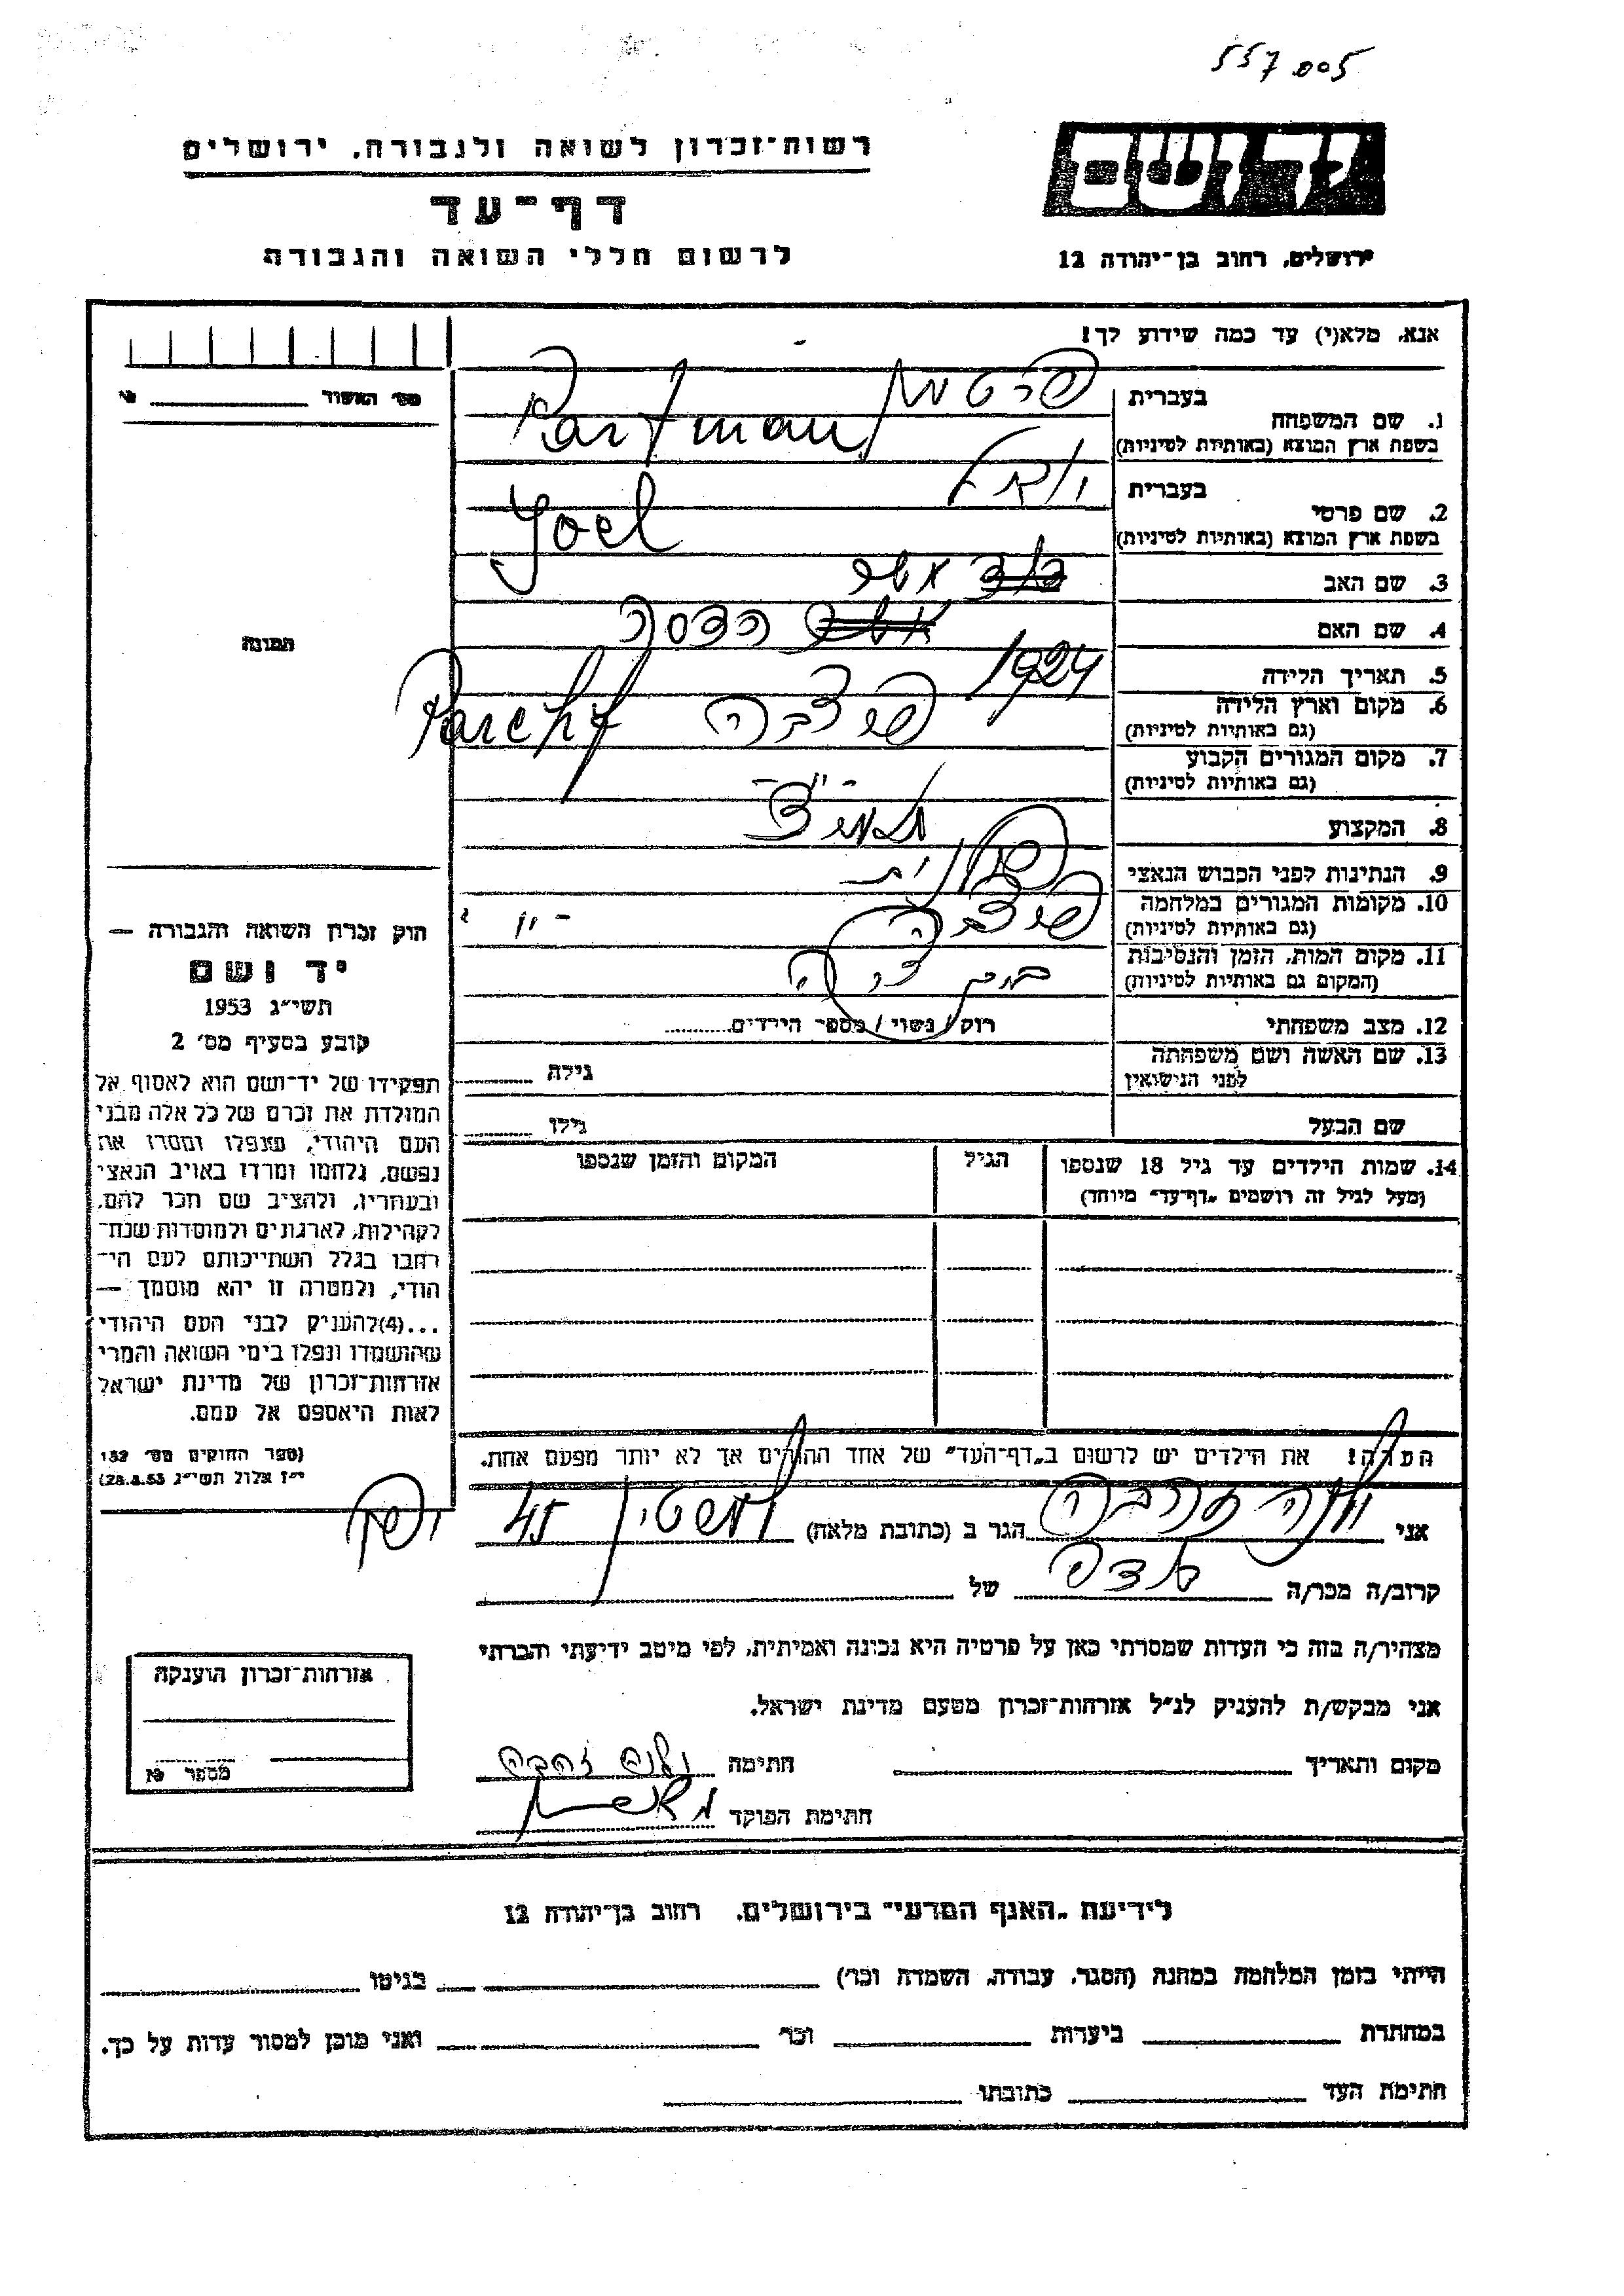 557005
רשות־זכרון לשואה ולגבורה, ירושלים
דף־עד
לרשום חללי השואה והגבורה
יד ושם
ירושלים, רחוב בן־יהודה 12
אנא, מלא(י) עד כמה שידוע לך!
מס׳ האשור № 
1. שם המשפחה
בעברית פרטמן
בשפת ארץ המוצא (באותיות לטיניות) Partman
2. שם פרטי
בעברית יואל
בשפת ארץ המוצא (באותיות לטיניות) Yoel
3. שם האב אשר
4. שם האם הדסה
5. תאריך הלידה 1924
6. מקום וארץ הלידה
(גם באותיות לטיניות)
7. מקום המגורים הקבוע
(גם באותיות לטיניות) -"-
8. המקצוע תלמיד
9. הנתינות לפני הכבוש הנאצי פולנית
10. מקומות המגורים במלחמה
(גם באותיות לטיניות)
11. מקום המות, הזמן והנסיבות
(המקום גם באותיות לטיניות)
12. מצב משפחתי רוק/נשוי/מספר הילדים
13. שם האשה ושם משפחתה
לפני הנישואין גילה
שם הבעל גילו
14. שמות הילדים עד גיל 18 שנספו הגיל המקום והזמן שנספו
(מעל לגיל זה רושמים „דף־עד״ מיוחד)
הערה! את הילדים יש לרשום ב„דף־העד״ של אחד ההורים אך לא יותר מפעם אחת.
תמונה
חוק זכרון השואה והגבורה —
יד ושם
תשי״ג 1953
קובע בסעיף מס׳ 2
תפקידו של יד־ושם הוא לאסוף אל
המולדת את זכרם של כל אלה מבני
העם היהודי, שנפלו ומסרו את
נפשם, נלחמו ומרדו באויב הנאצי
ובעוזריו, ולהציב שם וזכר להם,
לקהילות, לארגונים ולמוסדות שנח־
רבו בגלל השתייכותם לעם הי־
הודי, ולמטרה זו יהא מוסמך —
...(4)להעניק לבני העם היהודי
שהושמדו ונפלו בימי השואה והמרי
אזרחות־זכרון של מדינת ישראל
לאות היאספם אל עמם.
(ספר החוקים מס׳ 132
י״ז אלול תשי״ג 28.8.53)
אני הגר ב (כתובת מלאה) 45 יפו
קרוב/ה מכר/ה של
מצהיר/ה בזה כי העדות שמסרתי כאן על פרטיה היא נכונה ואמיתית, לפי מיטב ידיעתי והכרתי
אני מבקש/ת להעניק לנ״ל אזרחות־זכרון מטעם מדינת ישראל.
מקום ותאריך חתימה זהבה
חתימת הפוקד
אזרחות־זכרון הוענקה
מספר №
לידיעת „האגף המדעי״ בירושלים, רחוב בן־יהודה 12
הייתי בזמן המלחמה במחנה (הסגר, עבודה, השמדה וכר׳) בגיטו
במחתרת ביערות וכר׳ ואני מוכן למסור עדות על כך.
חתימת העד כתובתו